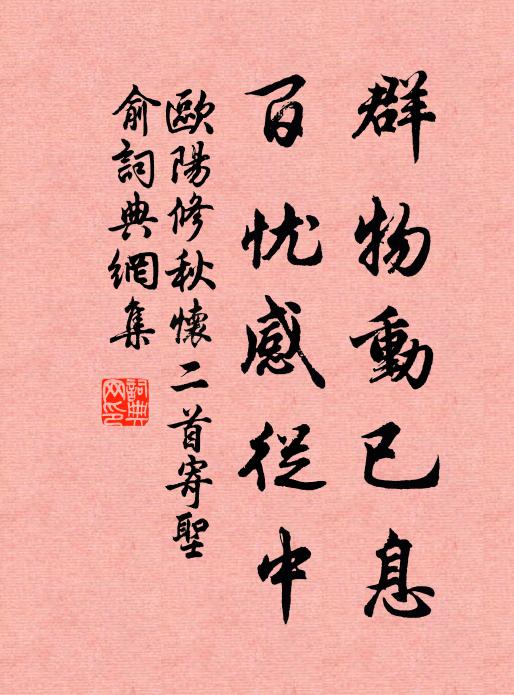 群物動已息
百忧感從中
歐陽修秋懷二首寄聖
俞詞典網集
詞典
网印